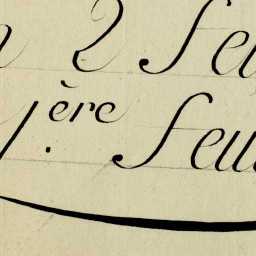 2 Feu
1.ère Feu